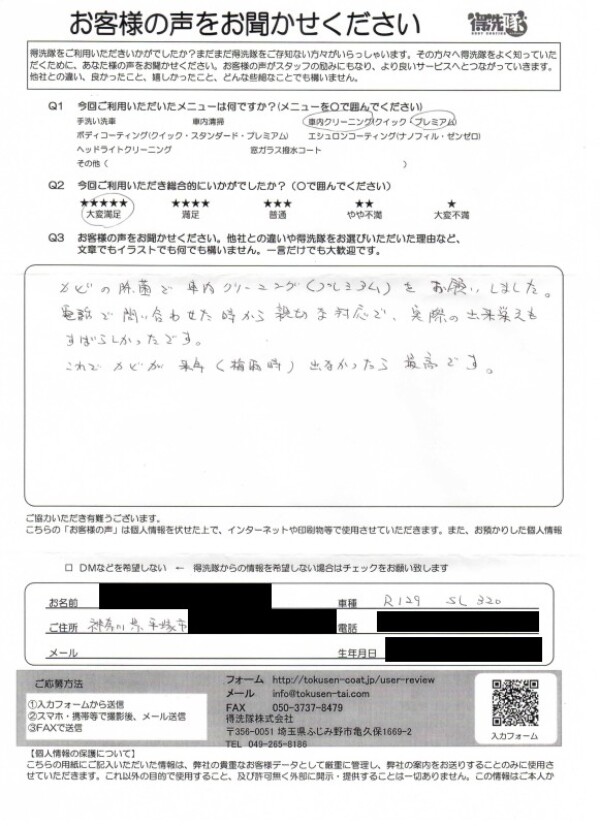 お客様の声をお聞かせください
得洗隊
得洗隊をご利用いただきいかがでしたか？まだまだ得洗隊をご存知ない方々がいらっしゃいます。その方々へ得洗隊をよく知っていた
だくために、あなた様の声をお聞かせください。お客様の声がスタッフの励みにもなり、より良いサービスへとつながっていきます。
他社との違い、良かったこと、嬉しかったこと、どんな些細なことでも構いません。
Q1 今回ご利用いただいたメニューは何ですか？(メニューを○で囲んでください)
手洗い洗車 車内清掃 車内クリーニング(クイック・プレミアム)
ボディコーティング(クイック・スタンダード・プレミアム) エシュロンコーティング(ナノフィル・ゼンゼロ)
ヘッドライトクリーニング 窓ガラス撥水コート
その他 ( )
Q2 今回ご利用いただき総合的にいかがでしたか？（○で囲んでください）
★★★★★ ★★★★ ★★★ ★★ ★
大変満足 満足 普通 やや不満 大変不満
Q3 お客様の声をお聞かせください。他社との違いや得洗隊をお選びいただいた理由など、
文章でもイラストでも何でも構いません。一言だけでも大歓迎です。
カビの除菌で車内クリーニング(プレミアム)をお願いしました。
電話で問い合わせた時から親切な対応で、実際の出来栄えも
すばらしかったです。
これでカビが来年(梅雨時)出なかったら最高です。
ご協力いただき有難うございます。
こちらの「お客様の声」は個人情報を伏せた上で、インターネットや印刷物等で使用させていただきます。また、お預かりした個人情報
□ DMなどを希望しない ← 得洗隊からの情報を希望しない場合はチェックをお願い致します
お名前 車種 R129 SL320
ご住所 神奈川県平塚市 電話
メール 生年月日
ご応募方法
①入力フォームから送信
②スマホ・携帯等で撮影後、メール送信
③FAXで送信
フォーム http://tokusen-coat.jp/user-review
メール info@tokusen-tai.com
FAX 050-3737-8479
得洗隊株式会社
〒356-0051 埼玉県ふじみ野市亀久保1669-2
TEL 049-265-8186
入力フォーム
【個人情報の保護について】
こちらの用紙にご記入いただいた情報は、弊社の貴重なお客様データとして厳重に管理し、弊社の案内をお送りすることのみに使用さ
せていただきます。これ以外の目的で使用すること、及び許可無く外部に開示・提供することは一切ありません。この情報はご本人か